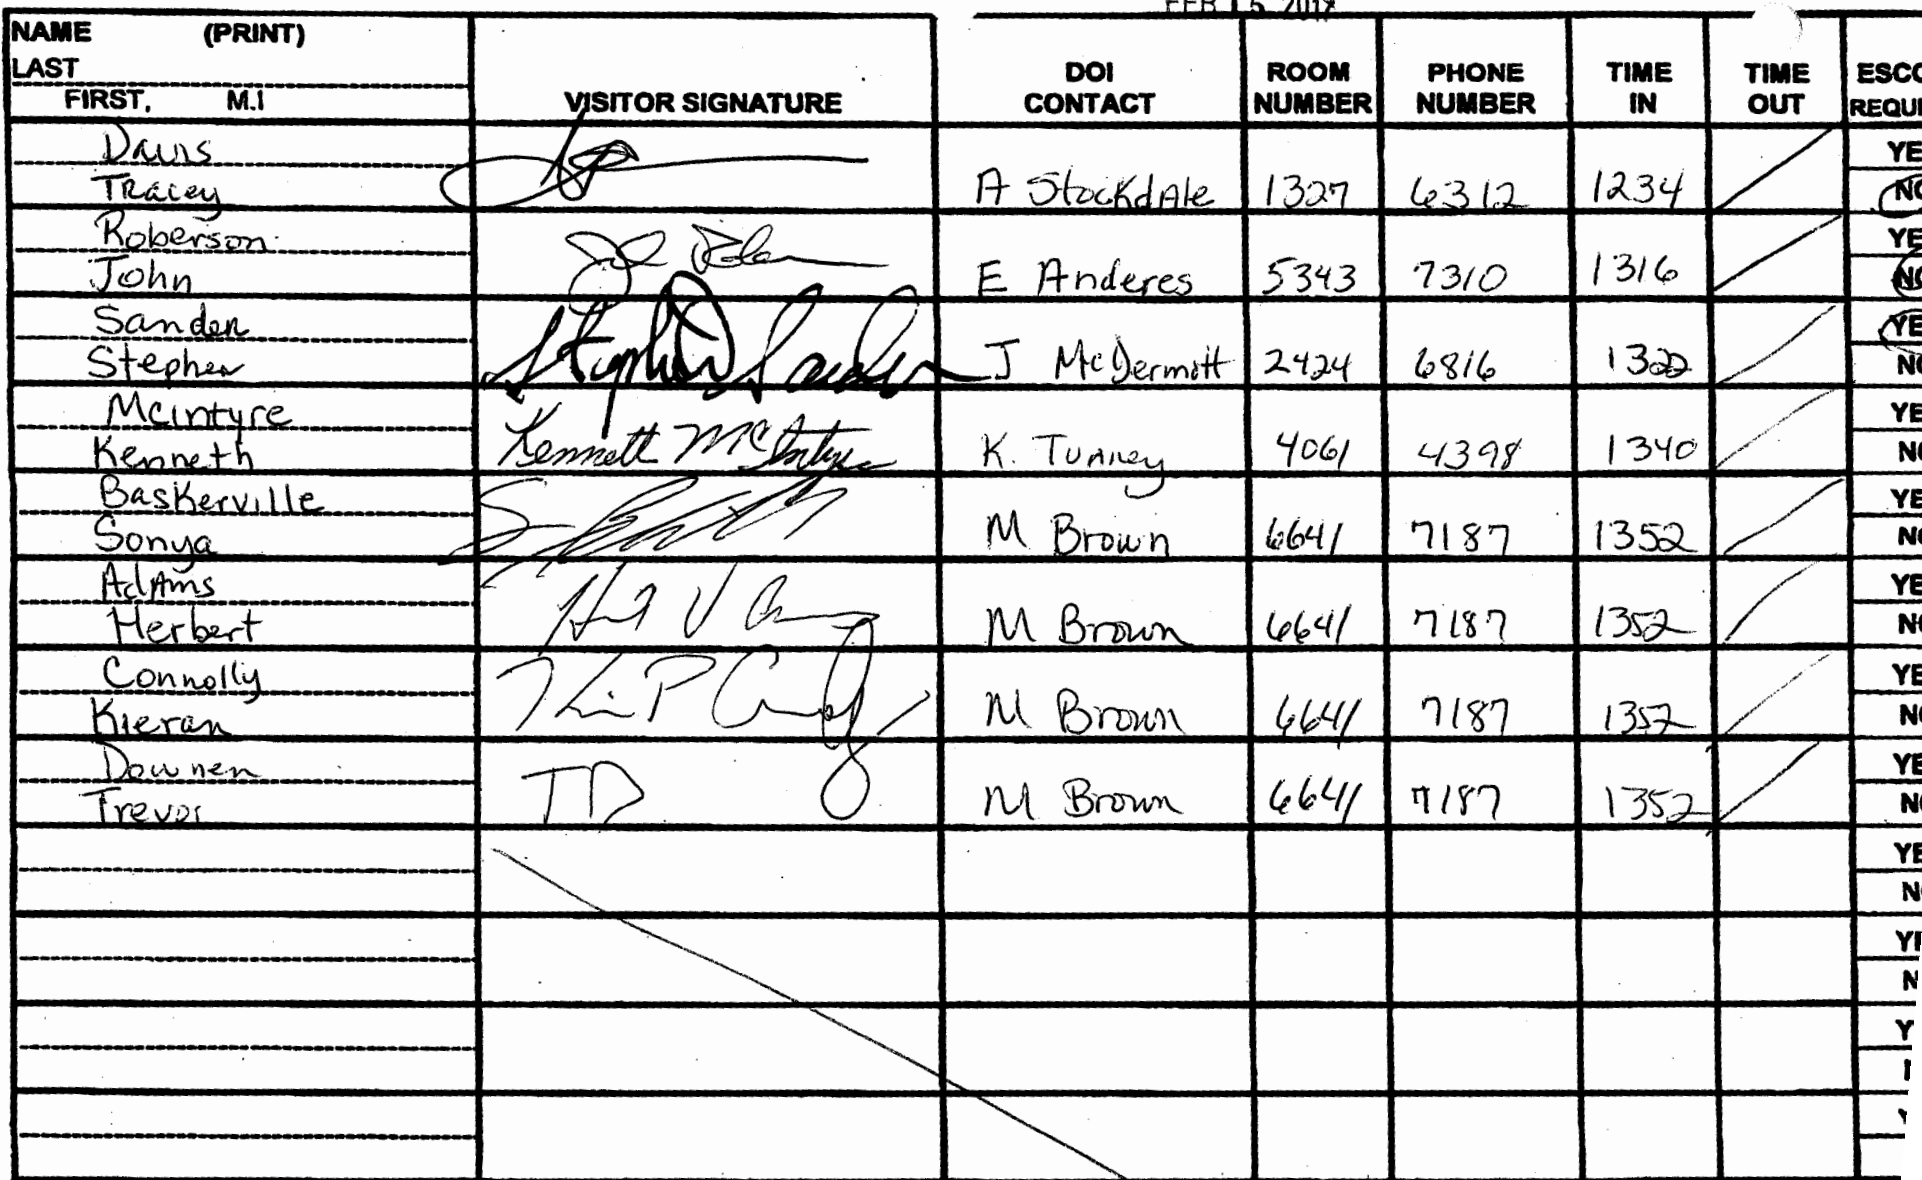 FEB 15 2017
NAME (PRINT)
LAST
FIRST, M.I
VISITOR SIGNATURE
DOI CONTACT
ROOM NUMBER
PHONE NUMBER
TIME IN
TIME OUT
Davis
Tracey
A Stockdale 1327 6312 1234
NO
Roberson
John
E Anderes 5343 7310 1316
NO
Sanden
Stephen
Stephen Sanden
J McDermott 2424 6816 1322
YE
NO
McIntyre
Kenneth
Kenneth McIntyre
K. Tunney 4061 4398 1340
YE
NO
Baskerville
Sonya
M Brown 6641 7187 1352
YE
NO
Adams
Herbert
M Brown 6641 7187 1352
YE
NO
Connolly
Kieran
M Brown 6641 7187 1352
YE
NO
Downen
Trevor
TD
M Brown 6641 7187 1352
YE
NO
YE
NO